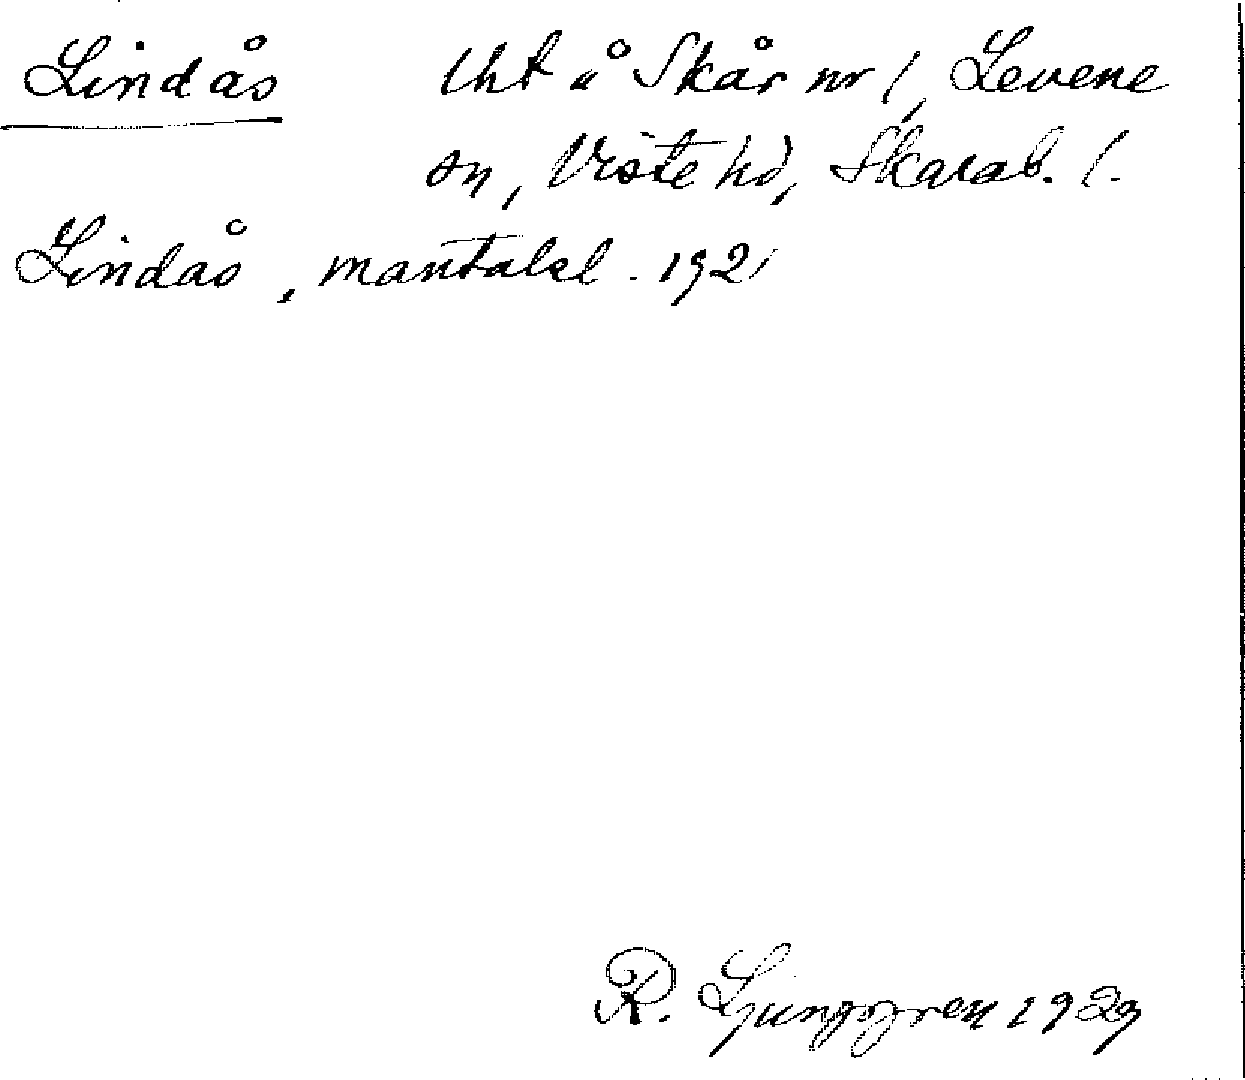 Lindås lht å Skår nr 1, Levene
sn, Viste hd, Skarab. l.
Lindås, mantalsl. 1921
R. Ljunggren 1929